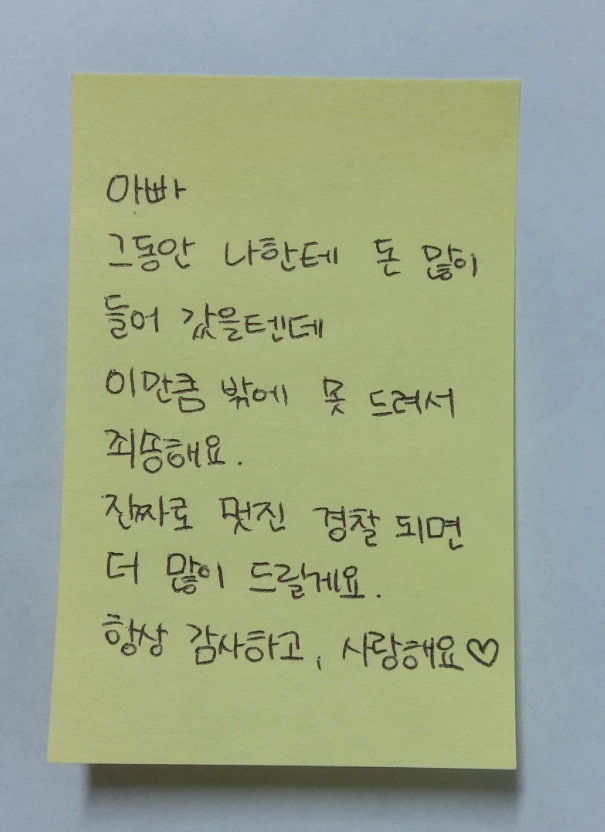 아빠
그동안 나한테 돈 많이
들어 갔을텐데
이만큼 밖에 못 드려서
죄송해요.
진짜로 멋진 경찰 되면
더 많이 드릴게요.
항상 감사하고, 사랑해요♡